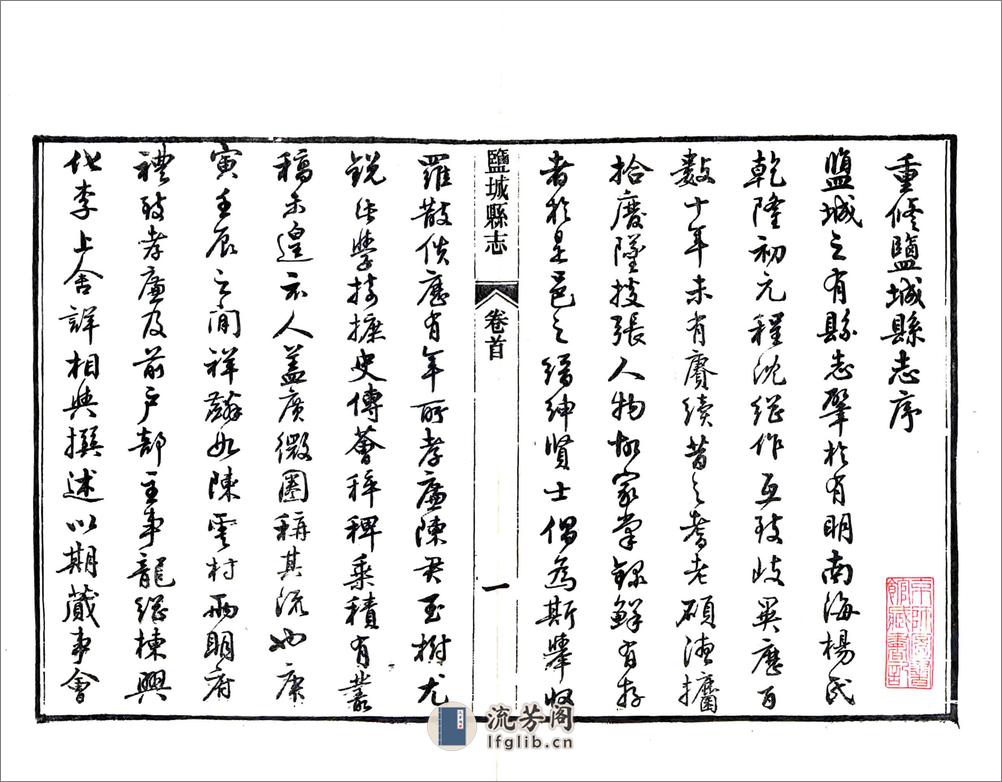 重修鹽城縣志序
鹽城之有縣志肇於有明南海楊氏
乾隆初元程沈繼作互致歧異歷百
數十年未有賡續昔之耆老碩德攟
拾廢墜投張人物
家掌錄鮮有存
者於是邑之縉紳賢士倡為斯舉收
鹽城縣志
卷首
一
羅散佚歷有年所孝廉陳君玉樹尤
銳學摭史傳薈稡稗乘積有叢
稿未遑示人蓋廣微圈稱其流也庚
寅壬辰之間祥如陳雲村兩明府
禮致孝廉及前戶部主事龍繼棟興
化李上舍詳相與撰述以期蕆事會
流芳阁
lfglib.cn